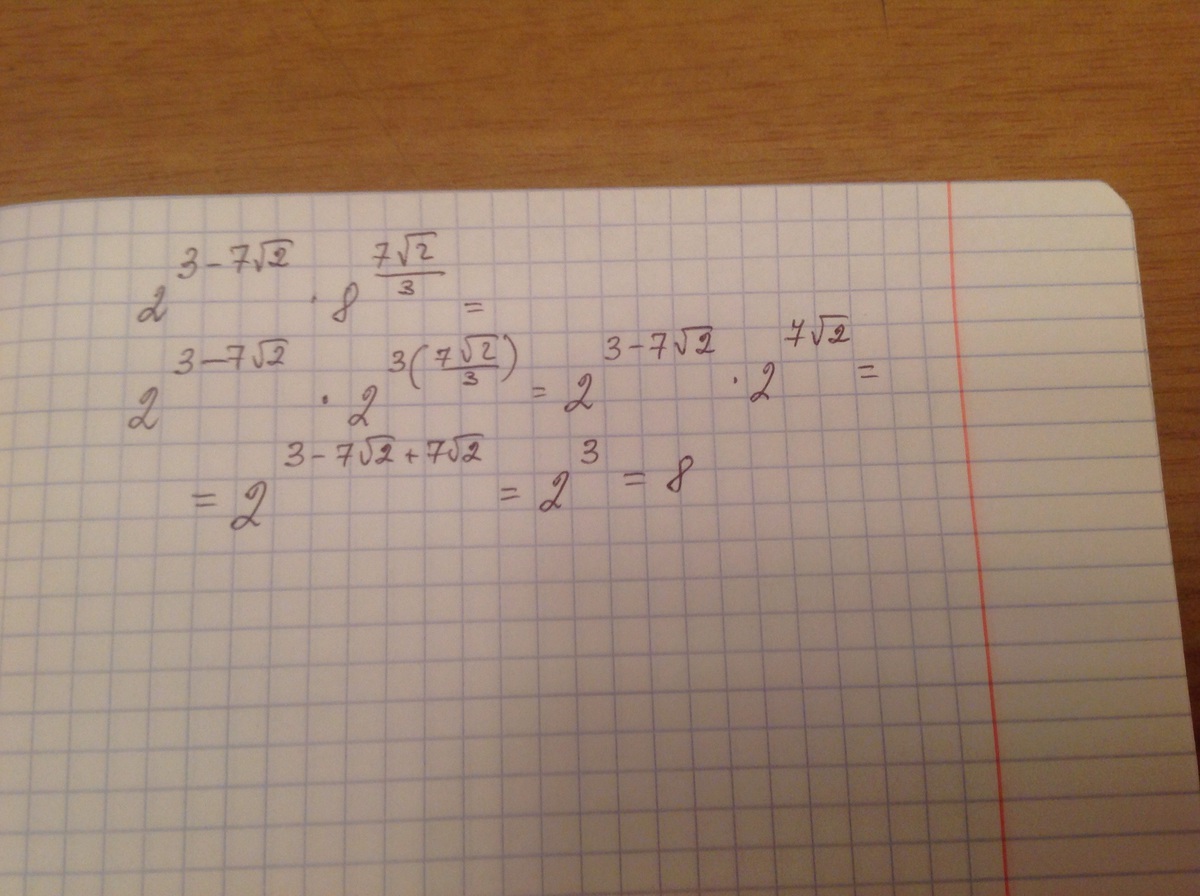 2^{3-7√2} · 8^{\frac{7√2}{3}} =
2^{3-7√2} · 2^{3(\frac{7√2}{3})} = 2^{3-7√2} · 2^{7√2} =
= 2^{3-7√2+7√2} = 2^3 = 8